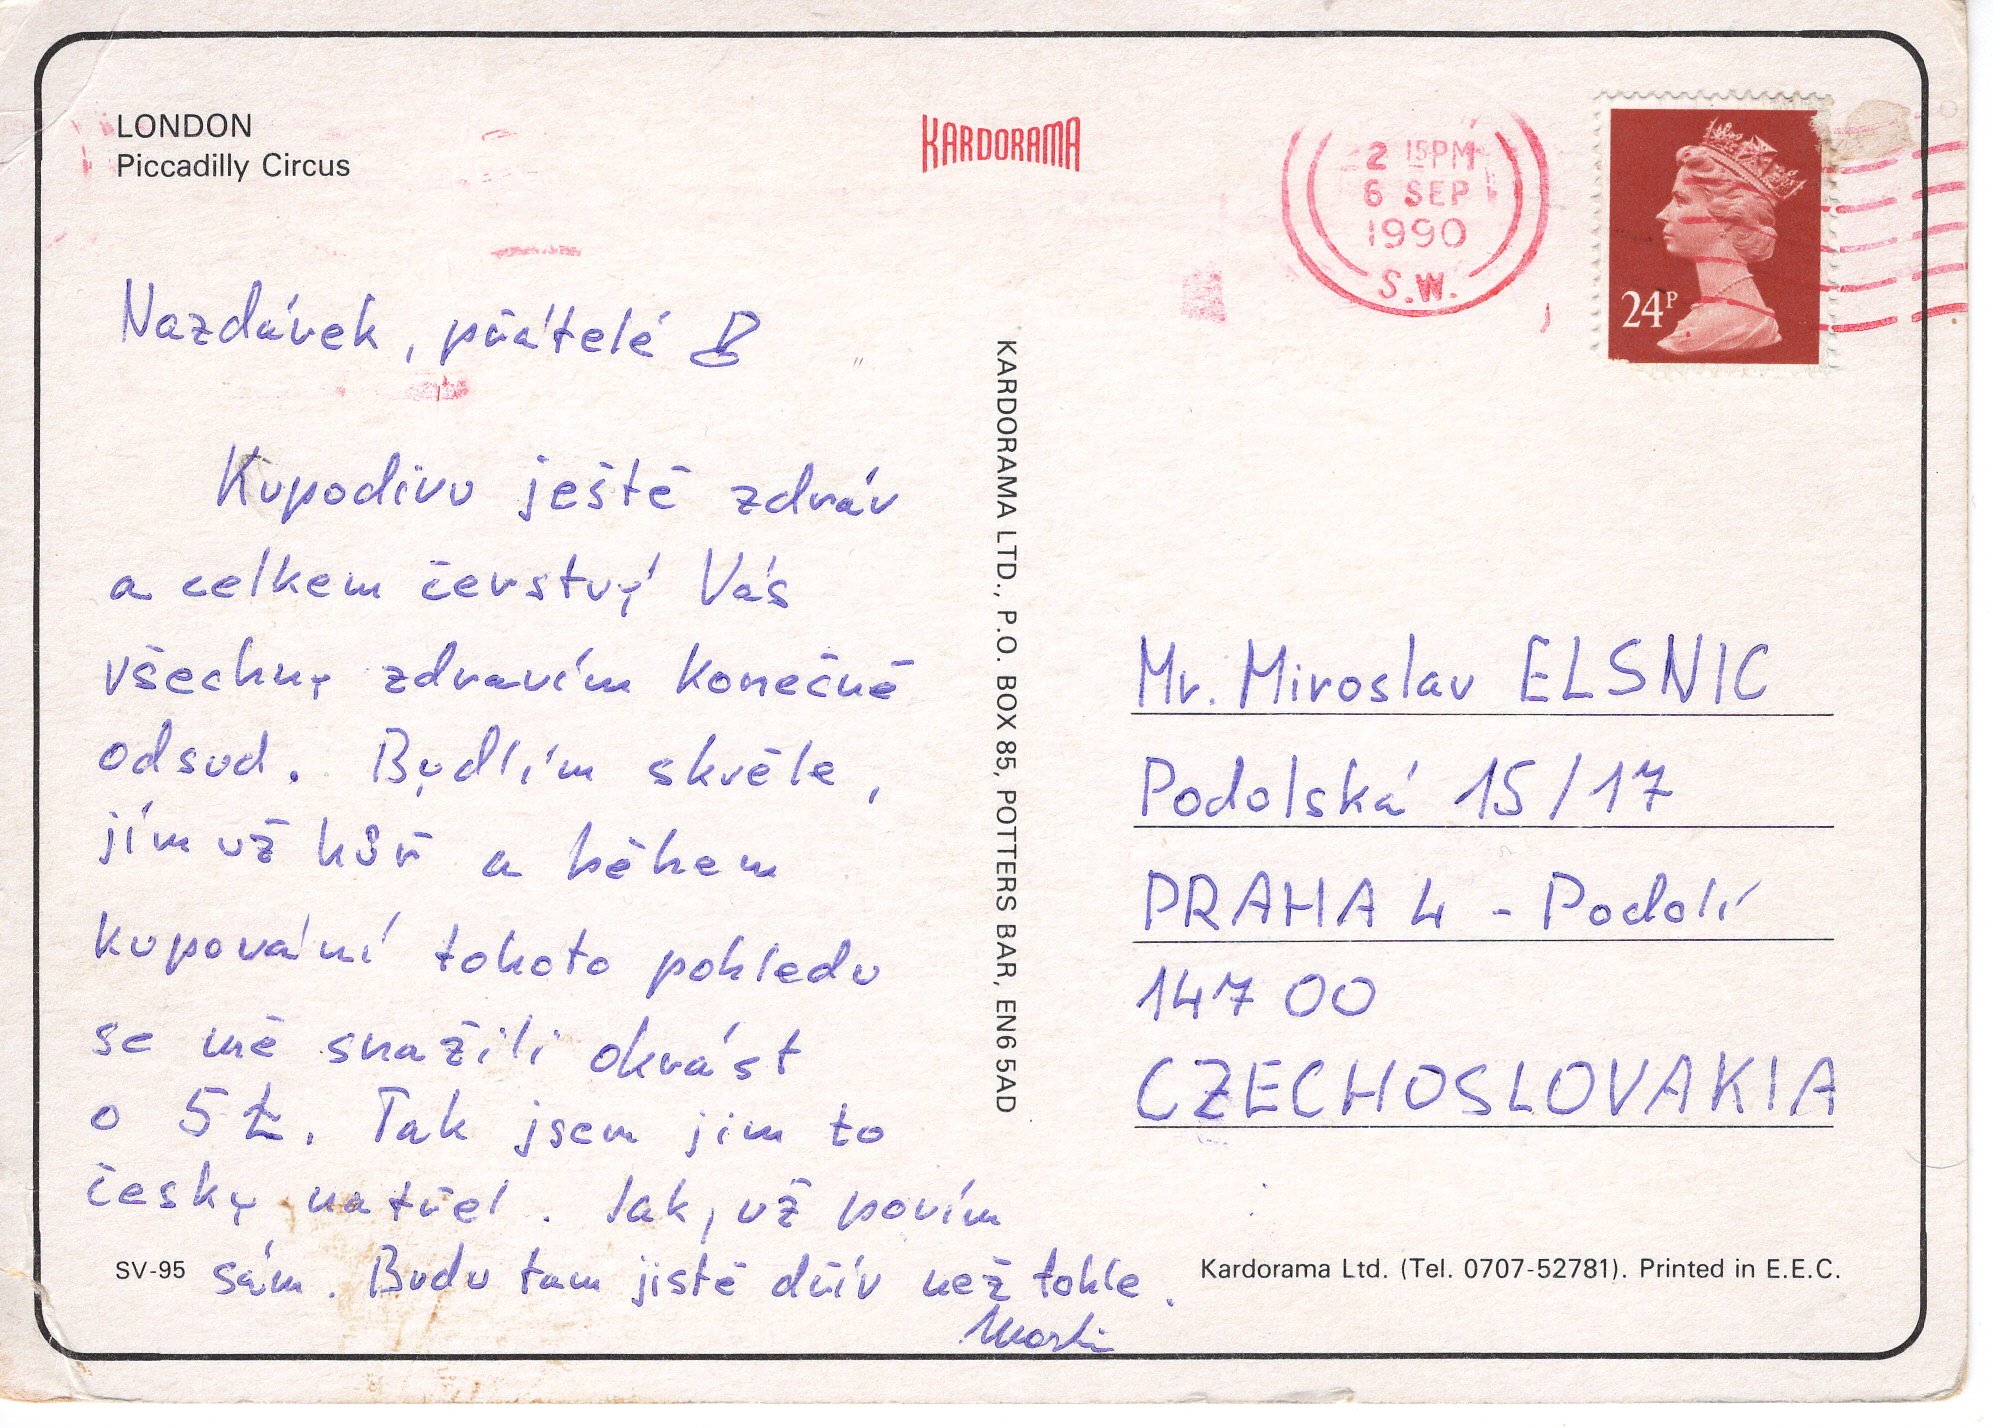 LONDON
Piccadilly Circus
KARDORAMA
2 15PM
6 SEP
1990
S.W.
24P
Nazdávek, přátelé
Kupodivu ještě zdráv
a celkem čerstvý Vás
všechny zdravím konečně
odsud. Bydlím skvěle,
jím už hůř a během
kupování tohoto pohledu
se mě snažili okrást
o 5 £. Tak jsem jim to
česky natřel. Jak, už povím
sám. Budu tam jistě dřív než tohle.
KARDORAMA LTD., P.O. BOX 85, POTTERS BAR, EN6 5AD
Mr. Miroslav ELSNIC
Podolská 15/17
PRAHA 4 - Podolí
147 00
CZECHOSLOVAKIA
SV-95
Kardorama Ltd. (Tel. 0707-52781). Printed in E.E.C.